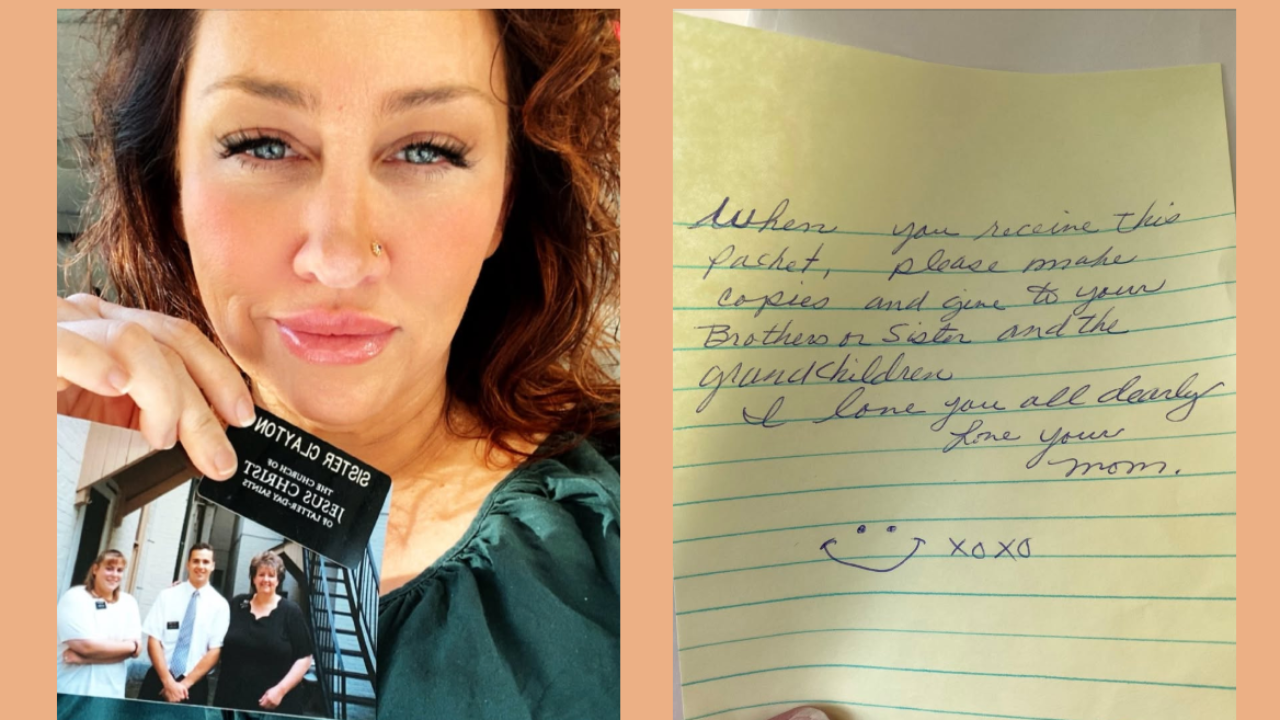 SISTER CLAYTON
THE CHURCH OF
JESUS CHRIST
OF LATTER-DAY SAINTS
When you receive this
packet, please make
copies and give to your
Brothers or Sister and the
grandchildren
I love you all dearly
Love your
mom.
XOXO